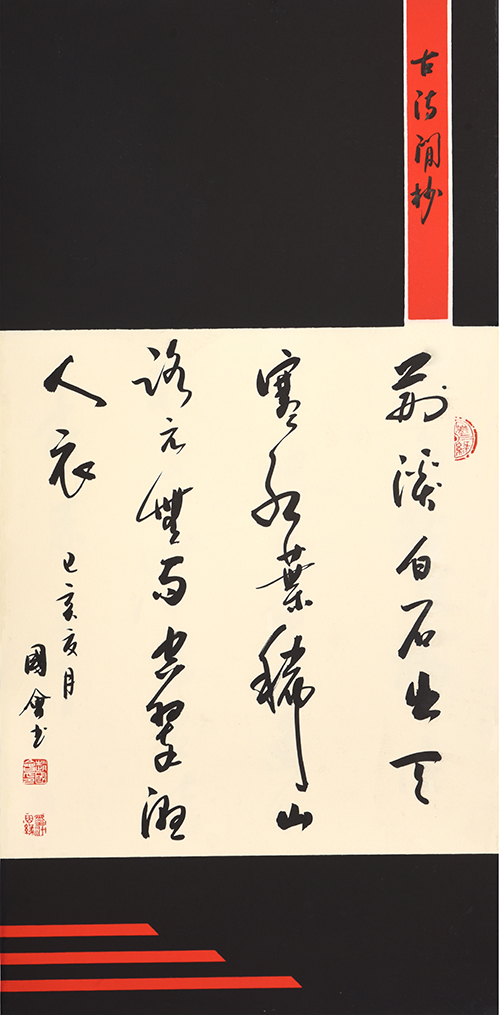 古诗閒抄
荆溪白石出天
寒红葉稀山
路元無雨空翠湿
人衣
己亥夏月
國會书